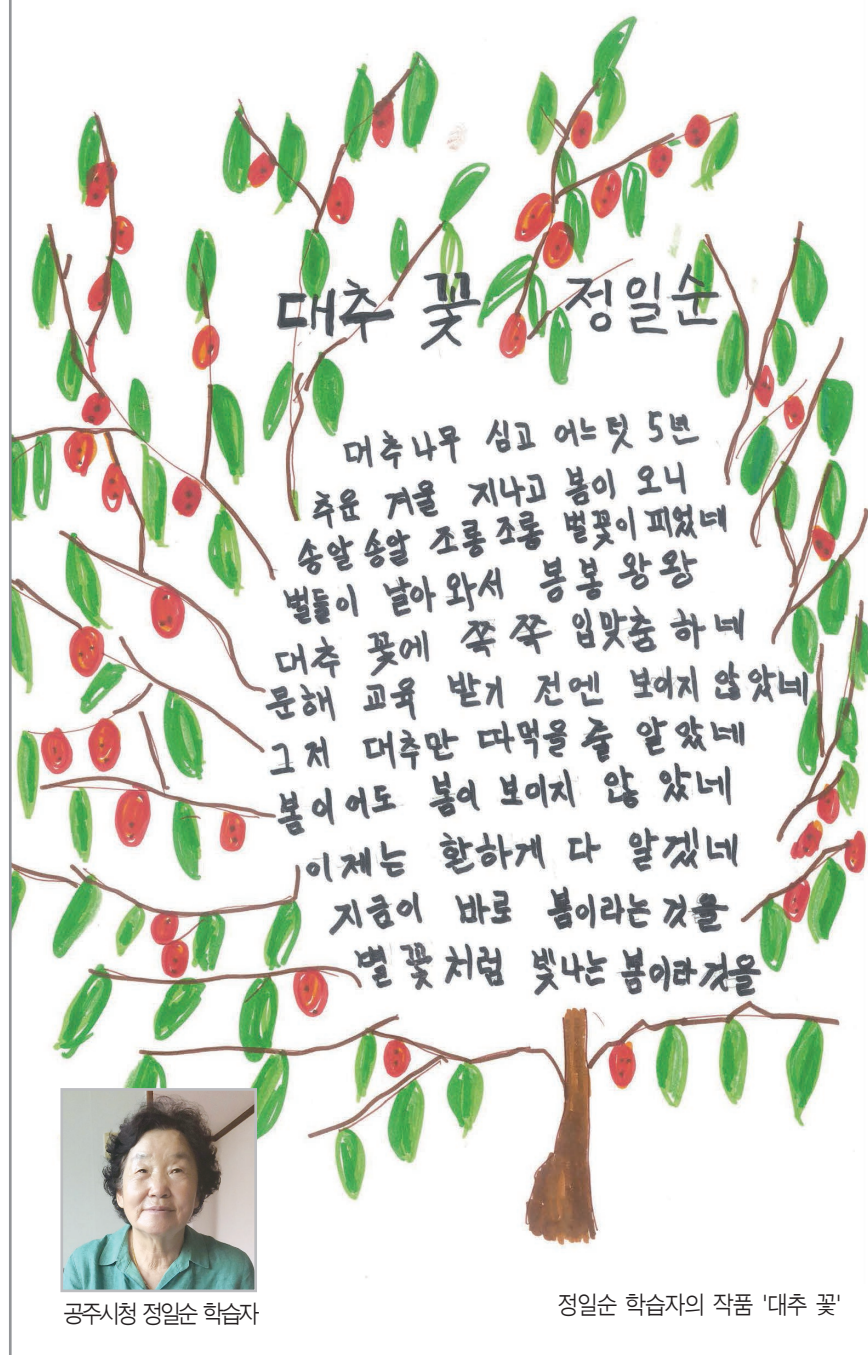 대추 꽃 정일순
대추나무 심고 어느덧 5년
추운 겨울 지나고 봄이 오니
송알송알 조롱조롱 별꽃이 피었네
벌들이 날아 와서 봉봉 왕왕
대추 꽃에 쪽쪽 입맞춤 하네
문해 교육 받기 전엔 보이지 않았네
그저 대추만 따먹을 줄 알았네
봄이 어도 봄이 보이지 않았네
이제는 환하게 다 알겠네
지금이 바로 봄이라는 것을
별꽃처럼 빛나는 봄이라것을
공주시청 정일순 학습자
정일순 학습자의 작품 '대추 꽃'